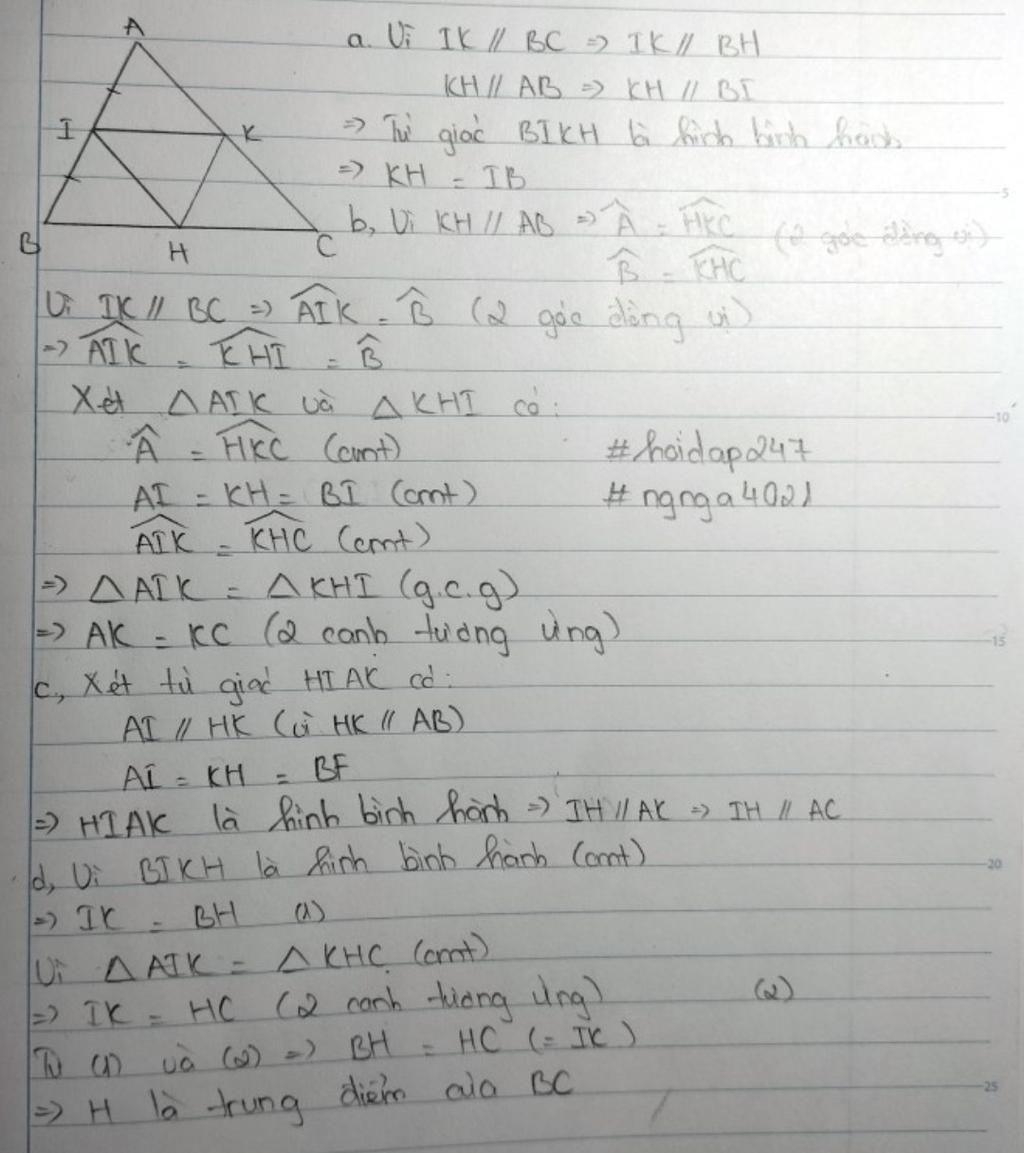 A
I
K
B
H
C
a. Vì IK // BC => IK // BH
KH // AB => KH // BI
=> Tứ giác BIKH là hình bình hành
=> KH = IB
b, Vì KH // AB => Â = HKC (2 góc đồng vị)
B̂ = KHC
Vì IK // BC => AIK = B̂ (2 góc đồng vị)
=> AIK = KHI = B̂
Xét △AIK và △KHI có:
Â = HKC (cmt)
#hoidap247
AI = KH = BI (cmt)
#ngnga4021
AIK = KHC (cmt)
=> △AIK = △KHI (g.c.g)
=> AK = KC (2 cạnh tương ứng)
c, Xét tứ giác HIAK có:
AI // HK (vì HK // AB)
AI = KH = BF
=> HIAK là hình bình hành => IH // AK => IH // AC
d, Vì BIKH là hình bình hành (cmt)
=> IK = BH (1)
Vì △AIK = △KHC (cmt)
=> IK = HC (2 cạnh tương ứng) (2)
Từ (1) và (2) => BH = HC (= IK)
=> H là trung điểm của BC
5
10
15
20
25